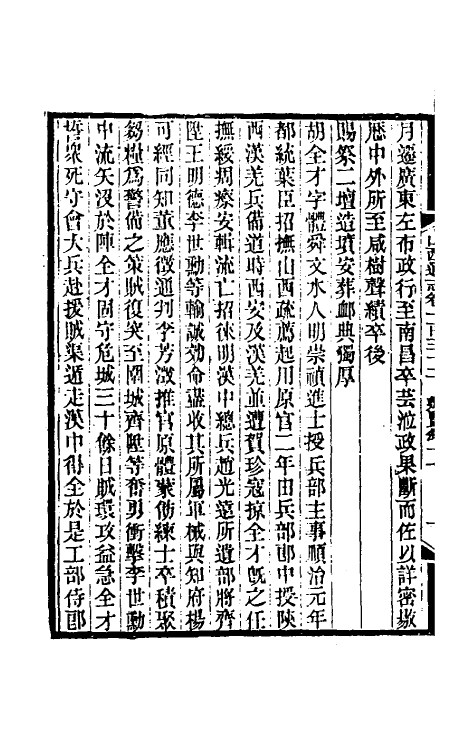 月遷廣東左布政行至南昌卒芸涖政果斷而佐以詳密敭
歷中外所至咸樹聲績卒後
賜祭二壇造墳安葬卹典獨厚
胡全才字體舜文水人明崇禎進士授兵部主事順治元年
都統葉臣招撫山西疏薦起川原官二年由兵部郎中授陝
西漢羌兵備道時西安及漢羌並遭賀珍寇掠全才旣之任
撫綏痌瘝安輯流亡招徠明漢中總兵趙光遠所遺部將齊
陞王明德李世勳等輸誠効命盡收其所屬軍械與知府楊
可經同知董應徵通判李芳澂推官原體蒙訪練士卒積聚
芻糧爲警備之策賊復突至圍城齊陞等奮勇衝擊李世勳
中流矢没於陣全才固守危城三十餘日賊環攻益急全才
誓衆死守會大兵赴援賊渠遁走漢中得全於是工部侍郎
山西通志卷一百三十二